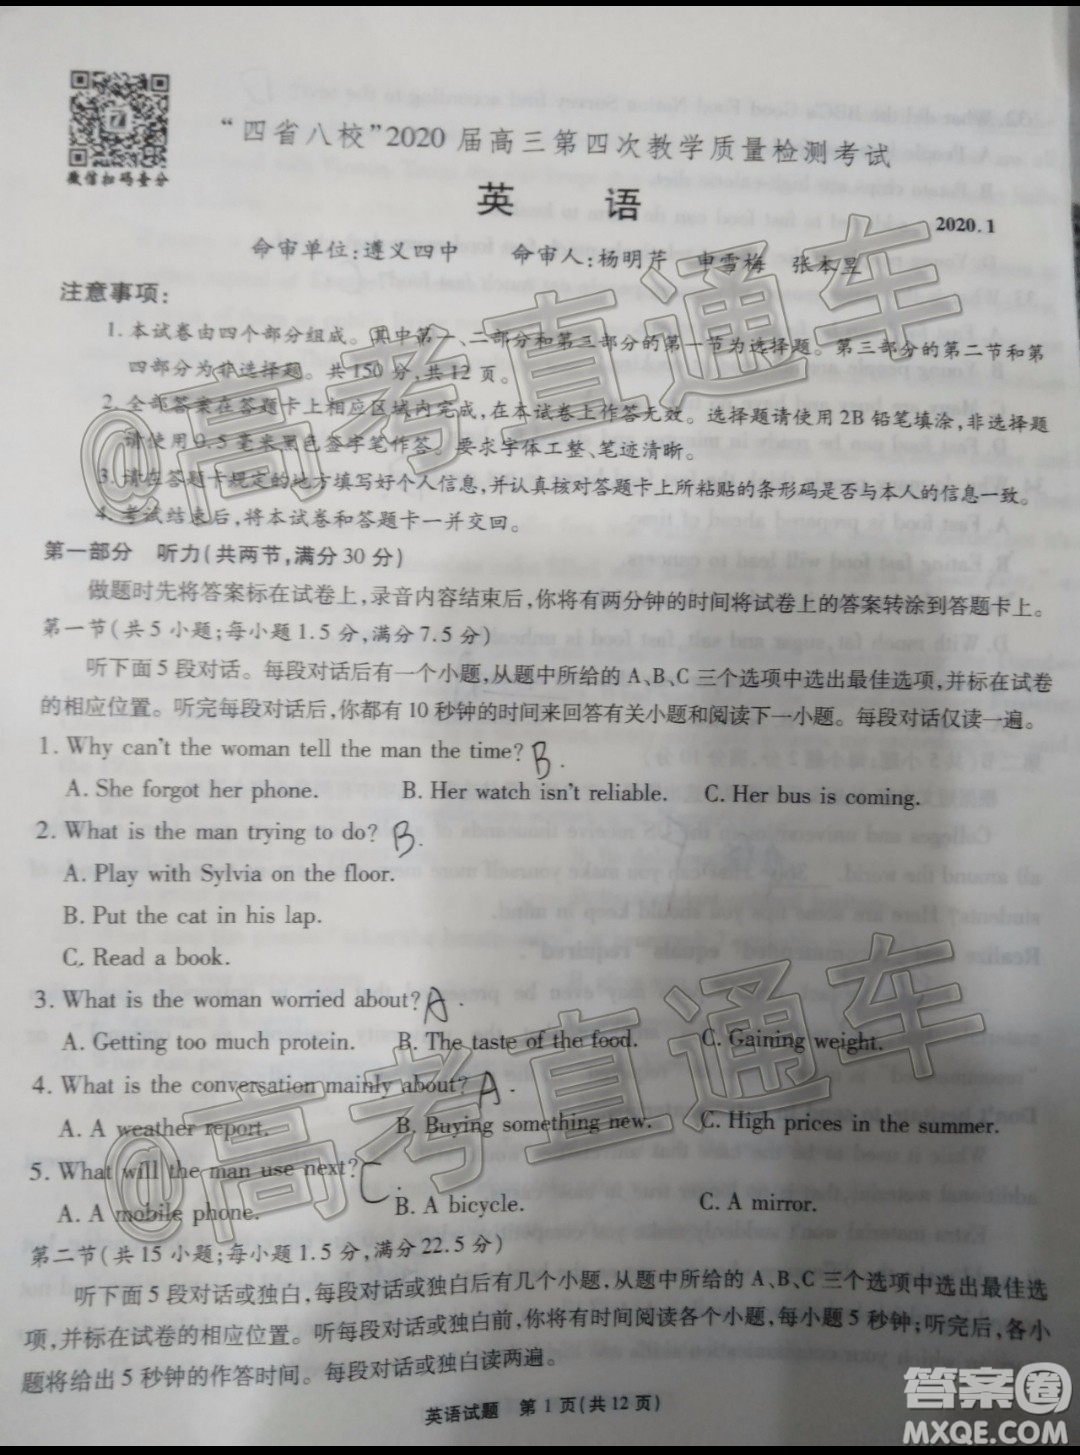 微信扫码查分
“四省八校”2020届高三第四次教学质量检测考试
英 语
2020.1
命审单位:遵义四中 命审人:杨明芹 申雪梅 张本昱
注意事项:
1. 本试卷由四个部分组成。其中第一、二部分和第三部分的第一节为选择题。第三部分的第二节和第
四部分为非选择题。共150分,共12页。
2. 全部答案在答题卡上相应区域内完成,在本试卷上作答无效。选择题请使用2B铅笔填涂,非选择题
请使用0.5毫米黑色签字笔作答。要求字体工整、笔迹清晰。
3. 请在答题卡规定的地方填写好个人信息,并认真核对答题卡上所粘贴的条形码是否与本人的信息一致。
4. 考试结束后,将本试卷和答题卡一并交回。
第一部分 听力(共两节,满分30分)
做题时先将答案标在试卷上,录音内容结束后,你将有两分钟的时间将试卷上的答案转涂到答题卡上。
第一节(共5小题;每小题1.5分,满分7.5分)
听下面5段对话。每段对话后有一个小题,从题中所给的A、B、C三个选项中选出最佳选项,并标在试卷
的相应位置。听完每段对话后,你都有10秒钟的时间来回答有关小题和阅读下一小题。每段对话仅读一遍。
1. Why can't the woman tell the man the time? B.
A. She forgot her phone. B. Her watch isn't reliable. C. Her bus is coming.
2. What is the man trying to do? B.
A. Play with Sylvia on the floor.
B. Put the cat in his lap.
C. Read a book.
3. What is the woman worried about? A.
A. Getting too much protein. B. The taste of the food. C. Gaining weight.
4. What is the conversation mainly about? A.
A. A weather report. B. Buying something new. C. High prices in the summer.
5. What will the man use next? C.
A. A mobile phone. B. A bicycle. C. A mirror.
第二节(共15小题;每小题1.5分,满分22.5分)
听下面5段对话或独白,每段对话或独白后有几个小题,从题中所给的A、B、C三个选项中选出最佳选
项,并标在试卷的相应位置。听每段对话或独白前,你将有时间阅读各个小题,每小题5秒钟;听完后,各小
题将给出5秒钟的作答时间。每段对话或独白读两遍。
英语试题 第1页(共12页)
@高考直通车
@高考直通车
答案圈
MXQE.COM